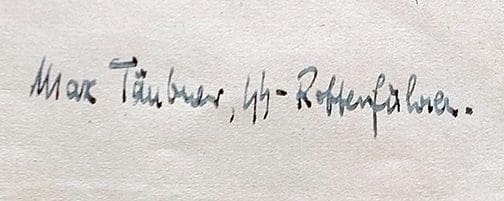 Max Täubner, SS-Rottenführer.